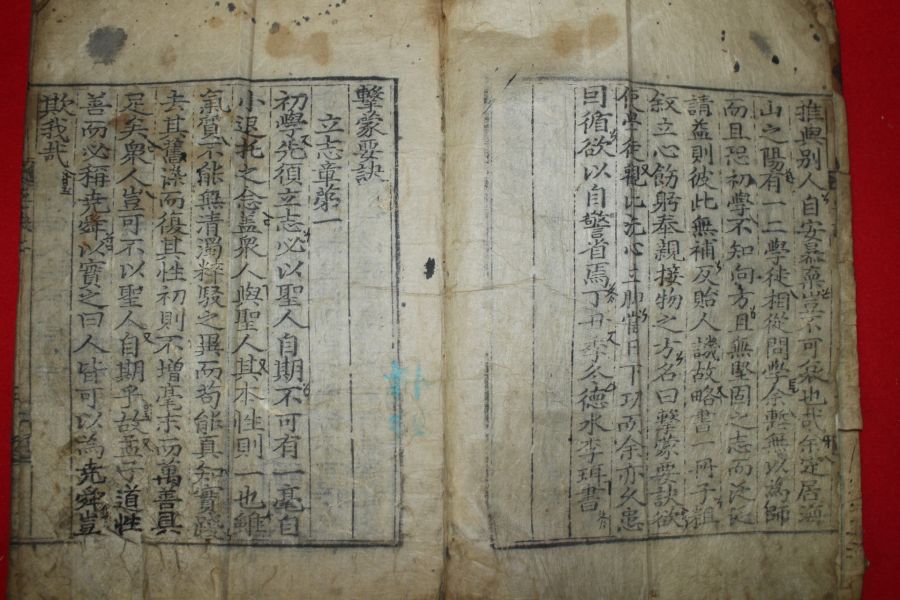 推與別人自安暴棄豈不可哀也哉余定居海
山之陽有一二學徒相從問學余慙無以為師
而且恐初學不知向方且無堅固之志而泛泛
請益則彼此無補反貽人譏故略書一冊子粗
叙立心飭躬奉親接物之方名曰擊蒙要訣欲
使學徒觀此洗心立脚當日下功而余亦久患
囙循欲以自警省焉丁丑季冬德水李珥書
擊蒙要訣
立志章第一
初學先須立志必以聖人自期不可有一毫自
小退托之念盖衆人與聖人其本性則一也雖
氣質不能無清濁粹駁之異而苟能真知實踐
去其舊染而復其性初則不增毫末而萬善具
足矣衆人豈可不以聖人自期乎故孟子道性
善而必稱堯舜以實之曰人皆可以為堯舜豈
欺我哉